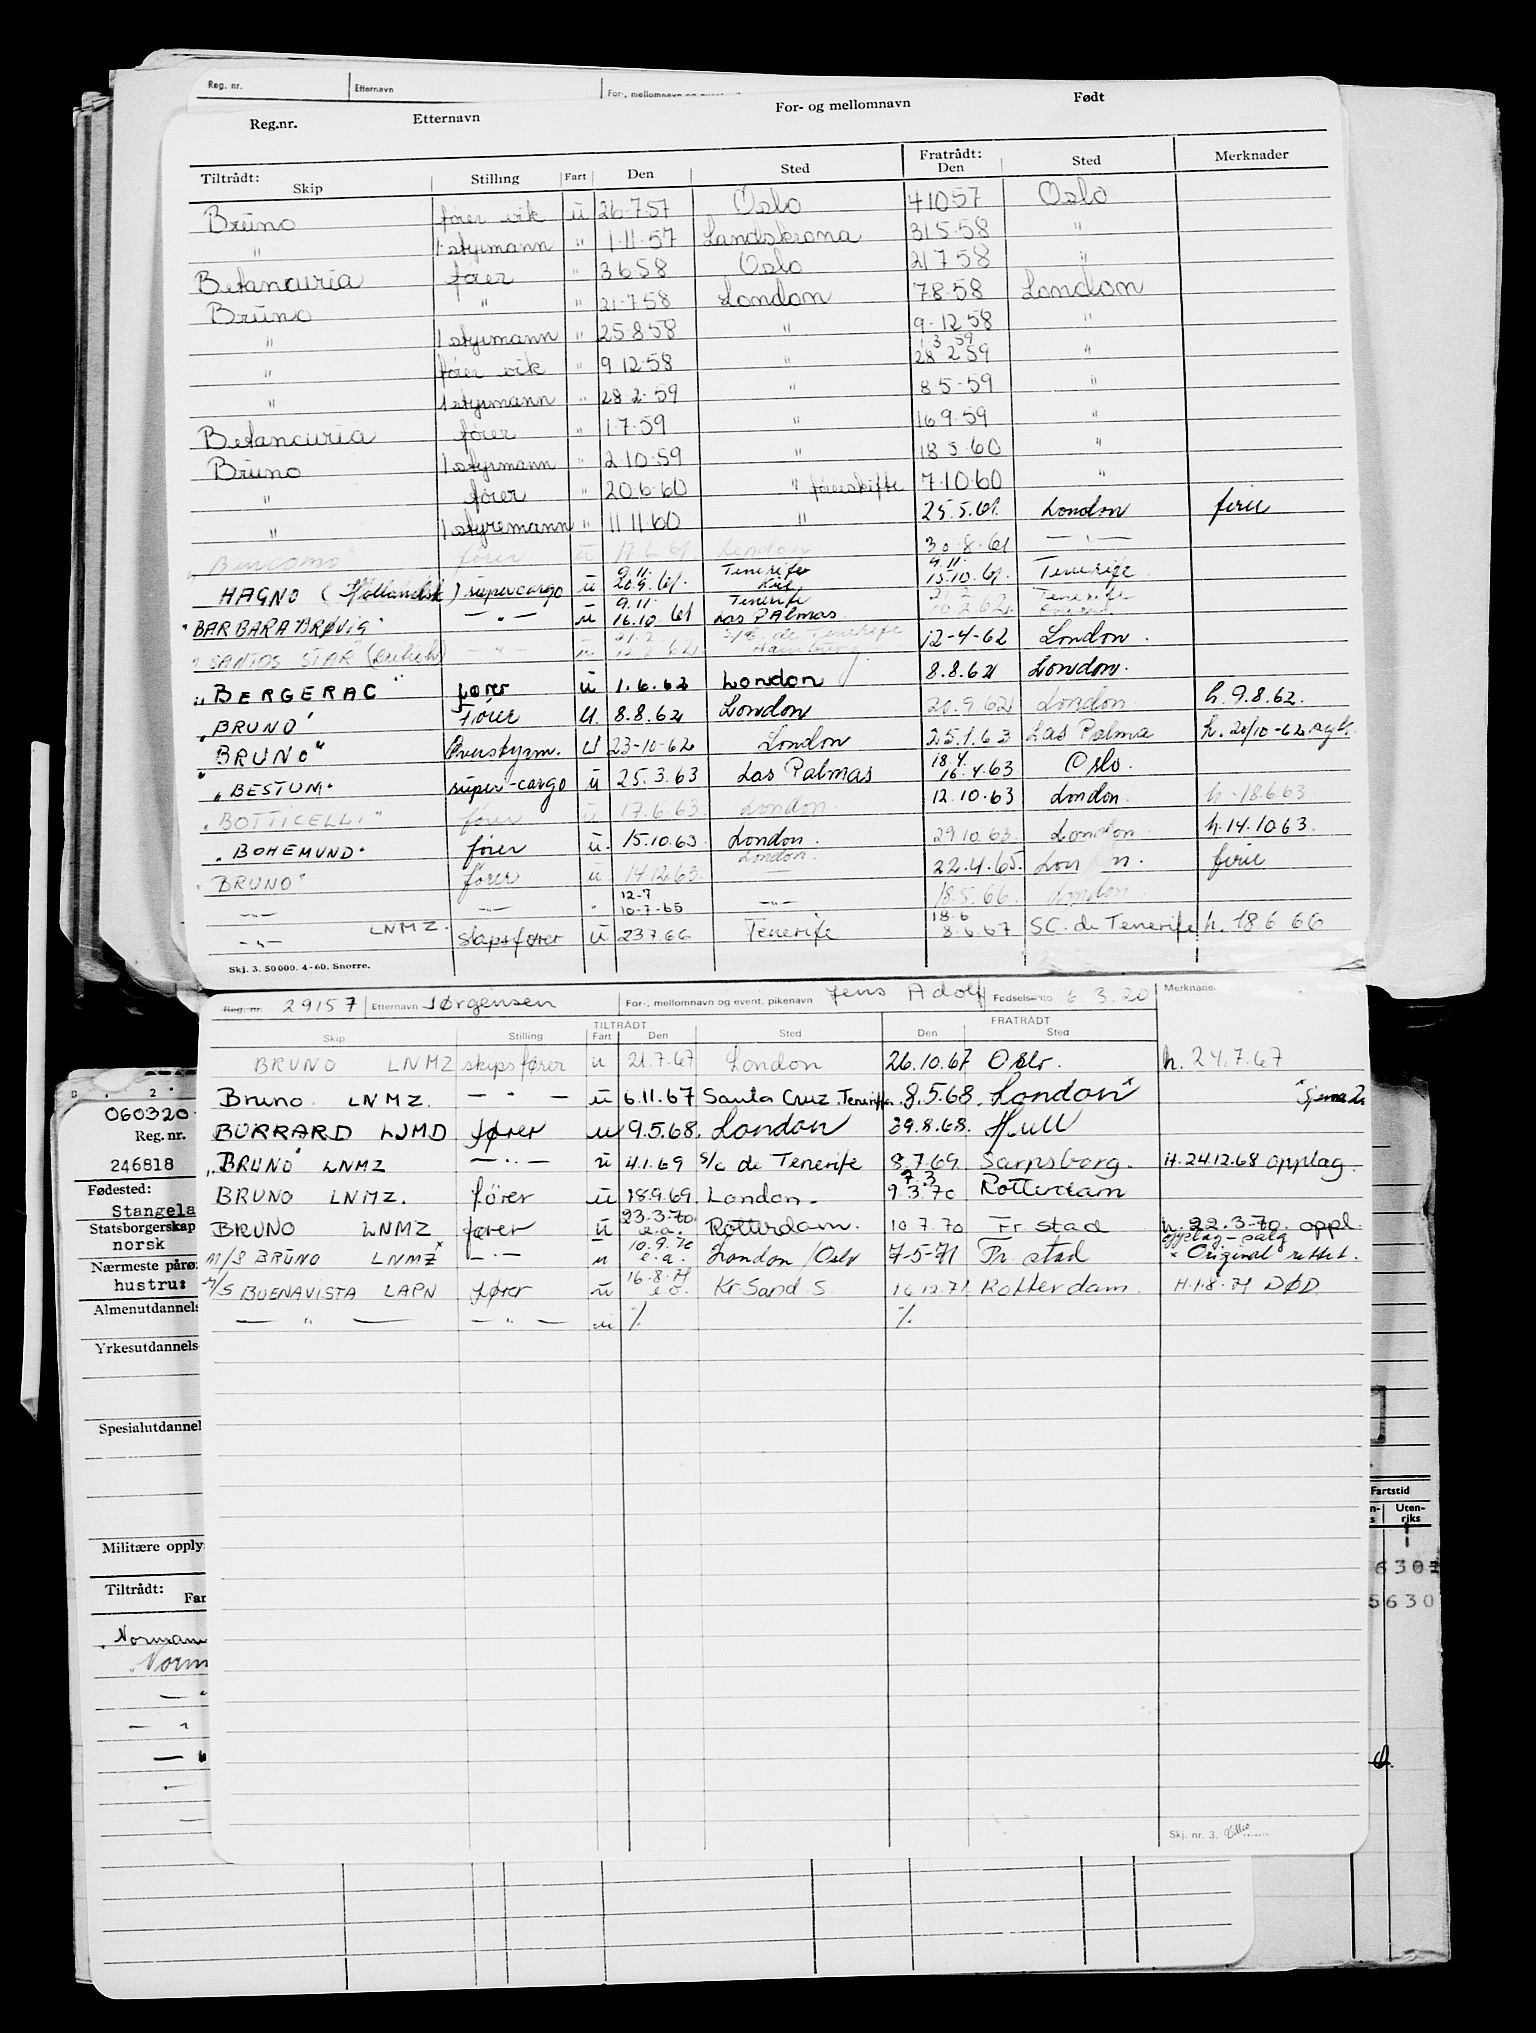 Reg. nr. Etternavn
Reg.nr. Etternavn For- og mellomnavn Født
Tiltrådt: Skip Stilling Fart Den Sted Fratrådt: Den Sted Merknader
Bruno fører vik u 26-7-57 Oslo 41057 Oslo
" 1 styrmann " 1-11-57 Landskrona 315-58 "
Betancuria fører " 3658 Oslo 21758 "
Bruno " " 21-7-58 London 78-58 London
" 1 styrmann " 25-8-58 " 9-12-58 "
" fører vik " 9 12-58 " 28 2 59 "
" 1 styrmann " 28-2-59 " 8 5-59 "
Betancuria fører " 1-7-59 " 169-59 "
Bruno 1 styrmann " 2-10-59 " 18 5-60 "
" fører " 206-60 " førerskifte 7-10-60 "
" 1 styremann " 11 11 60 " 25.5.61. London ferie
"Bencomo" fører u 17.6.61 London 30.8.61 — " —
HAGNO (Hollandsk) supercargo u 9.11. 20.9.61. Tenerife Kiel 9.11. 15.10.61. Tenerife
"BARBARA BRØVIG" — " — u 9.11. 16.10.61 Tenerife Las Palmas Tenerife
"SANTOS STAR — " — u 21.2. S/C. de Tenerife Hamburg 12-4-62 London.
"BERGERAC" fører u 1.6.62 London 8.8.62 London.
"BRUNO" Fører U. 8.8.62 London 20.9.62 London h. 9.8.62.
"BRUNO" Overstyrm. U 23-10-62 London 25.1.63 Las Palma h. 20/10-62
"BESTUM" super-cargo u 25.3.63 Las Palmas 18.4. 16.4.63 Oslo.
"BOTTICELLI" fører u 17.6.63. London 12.10.63 London. h-18.6.63.
"BOHEMUND" fører u. 15.10.63. London. 29.10.63. London. h.14.10.63.
"BRUNO" fører u 14.12.63. London. 22.4.65. London. ferie
— " — — " — " 12-7 10-7-65 — " — 18.5.66. London
— " — LNMZ. skipsfører U 237.66 Tenerife 18.6 8.6.67 SC. de Tenerife h. 18 6 66
Skj. 3. 50000. 4-60. Snorre.
Reg. nr. 29157 Etternavn Jørgensen For-, mellomnavn og event. pikenavn Jens Adolf Fødsels 6 3.20 Merknade.
TILTRÅDT FRATRÅDT
Skip Stilling Fart Den Sted Den Sted
BRUNO LNMZ skipsfører u 21.7.67 London 26.10.67 Oslo. h. 24.7.67
Bruno. LNMZ. — " — u 6.11.67 Santa Cruz. Teneriffa. 8.5.68. London"
BURRARD LJMD fører u 9.5.68. London 29.8.68. Hull
"BRUNO" LNMZ — " — u 4.1.69 S/C de Tenerife 8.7.69. Sarpsborg. H.24.12.68 opplag.
BRUNO LNMZ. fører u 18.9.69 London. 9.3.70 Rotterdam
BRUNO LNMZ fører u 23.3.70. e.a. Rotterdam. 10.7.70 Fr.stad h. 22.3-70. oppl.
opplag-salg
M/S BRUNO LNMZ — " — u 10.9.70 e.a. London/Oslo 7-5-71 Fr. stad × Original rettet.
M/S BUENAVISTA LAPN fører u 16.8.71 e.o. Kr. Sand. S. 16.12.71 Rotterdam. H.1.8.71 DØD
— " — — " — u ٪ ٪
Skj. nr. 3.
060320
Reg. nr.
246818
Fødested:
Stangela
Statsborgerskap
norsk
Nærmeste påro
hustru:
Almenutdannels
Yrkesutdannels
Spesialutdannel
Militære opply
Tiltrådt:
Far
Fartstid
Uten-
riks
5630
"Norman
"Norm